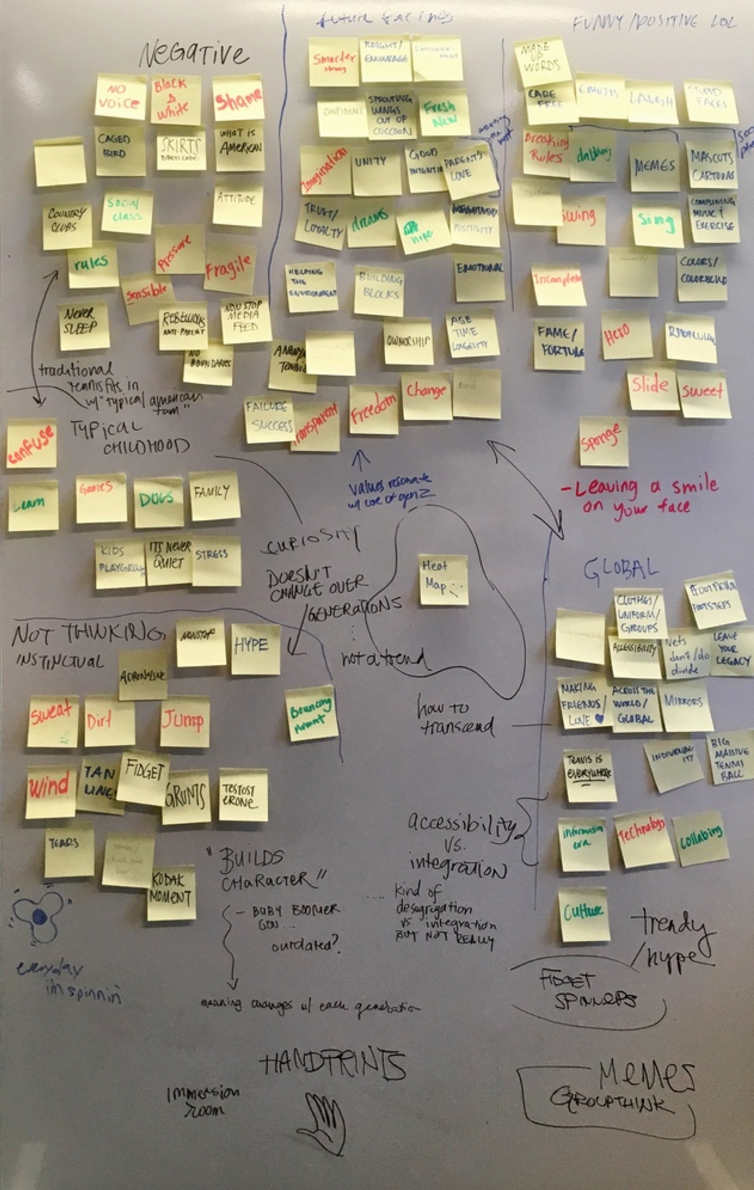 NEGATIVE
NO
VOICE
BLACK
&
White
Shame
CAGED
BIRD
SKIRTS
WHAT IS
AMERICAN
COUNTRY
CLUBS
Social
class
ATTITUDE
rules
Pressure
Fragile
Sensible
NEVER
SLEEP
REBELLIOUS
ANTI-PARENT
NON STOP
MEDIA
FEED
NO
BOUNDARIES
traditional
tennis fits in
w/ "typical american
fam"
FUTURE FACING
Smarter
BRIGHT/
ENCOURAGE
EMPOWERMENT
CONFIDENCE
SPROUTING
WINGS
OUT OF
COCOON
Fresh
New
Imagination
UNITY
GOOD
INTENTION
PARENT'S
LOVE
TRUST/
LOYALTY
dreams
hope
POSITIVITY
HELPING
THE
ENVIRONMENT
BUILDING
BLOCKS
EMOTIONAL
OWNERSHIP
AGE
TIME
LONGEVITY
FAILURE
SUCCESS
Transparent
Freedom
Change
values resonate
w/ core of gen Z
FUNNY/POSITIVE LOL
MADE
UP
WORDS
CARE
FREE
EMOJIS
LAUGH
STUPID
FACES
Breaking
RULES
dabbing
MEMES
MASCOTS
CARTOONS
Swing
Sing
COMBINING
MUSIC &
EXERCISE
Incomplete
COLORS/
COLORBLIND
FAME/
FORTUNE
Hero
RIDICULOUS
Slide
Sweet
Sponge
- Leaving a smile
on your face
TYPICAL
CHILDHOOD
confuse
Learn
Games
DOGS
FAMILY
KIDS
PLAYGROUND
IT'S NEVER
QUIET
STRESS
CURIOSITY
DOESN'T
CHANGE OVER
GENERATIONS
...
not a trend
Heat
Map
how to
transcend
NOT THINKING
INSTINCTUAL
NONSTOP
HYPE
ADRENALINE
Bouncing
Sweat
Dirt
Jump
Wind
TAN
LINE
FIDGET
GRUNTS
TESTOST
ERONE
TEARS
KODAK
MOMENT
everyday
i'm spinnin
"BUILDS
CHARACTER"
- BABY BOOMER
GEN...
outdated?
meaning changes w/ each generation
accessibility
vs.
integration
... kind of
desegregation
vs integration
BUT NOT REALLY
GLOBAL
CLOTHES/
UNIFORM/
GROUPS
FOOTPRINT
FOOTSTEPS
ACCESSIBILITY
Nets
don't/do
divide
LEAVE
YOUR
LEGACY
MAKING
FRIENDS/
LOVE ♥
ACROSS THE
WORLD/
GLOBAL
MIRRORS
TENNIS IS
EVERYWHERE
INDIVIDUAL
ITY
BIG
MASSIVE
TENNIS
BALL
information
era
Technology
collabing
Culture
trendy
/hype
FIDGET
SPINNERS
HANDPRINTS
Immersion
room
MEMES
GROUPTHINK